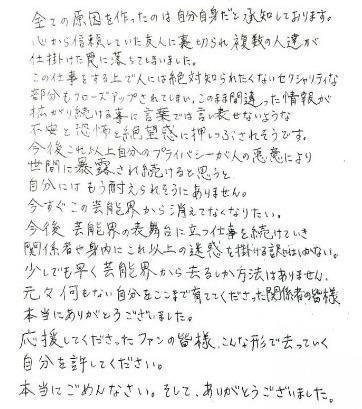 全ての原因を作ったのは自分自身だと承知しております。
心から信頼していた友人に裏切られ複数の人達が
仕掛けた罠に落ちてしまいました。
この仕事をする上で人には絶対知られたくないセクシャリティな
部分もクローズアップされてしまい、このまま間違った情報が
拡がり続ける事に言葉では言い表せないような
不安と恐怖と絶望感に押しつぶされそうです。
今後これ以上自分のプライバシーが人の悪意により
世間に暴露され続けると思うと
自分にはもう耐えられそうにありません。
今すぐこの芸能界から消えてなくなりたい。
今後芸能界の表舞台に立つ仕事を続けていき
関係者や身内にこれ以上の迷惑を掛ける訳にはいかない。
少しでも早く芸能界から去るしか方法はありません、
元々何もない自分をここまで育ててくださった関係者の皆様、
本当にありがとうございました。
応援してくださったファンの皆様、こんな形で去っていく
自分を許してください。
本当にごめんなさい。そして、ありがとうございました。